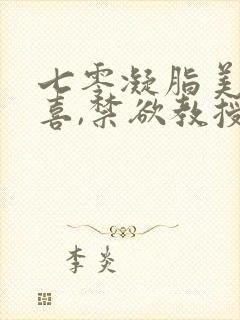 七零凝脂美
喜,禁欲教授
李炎